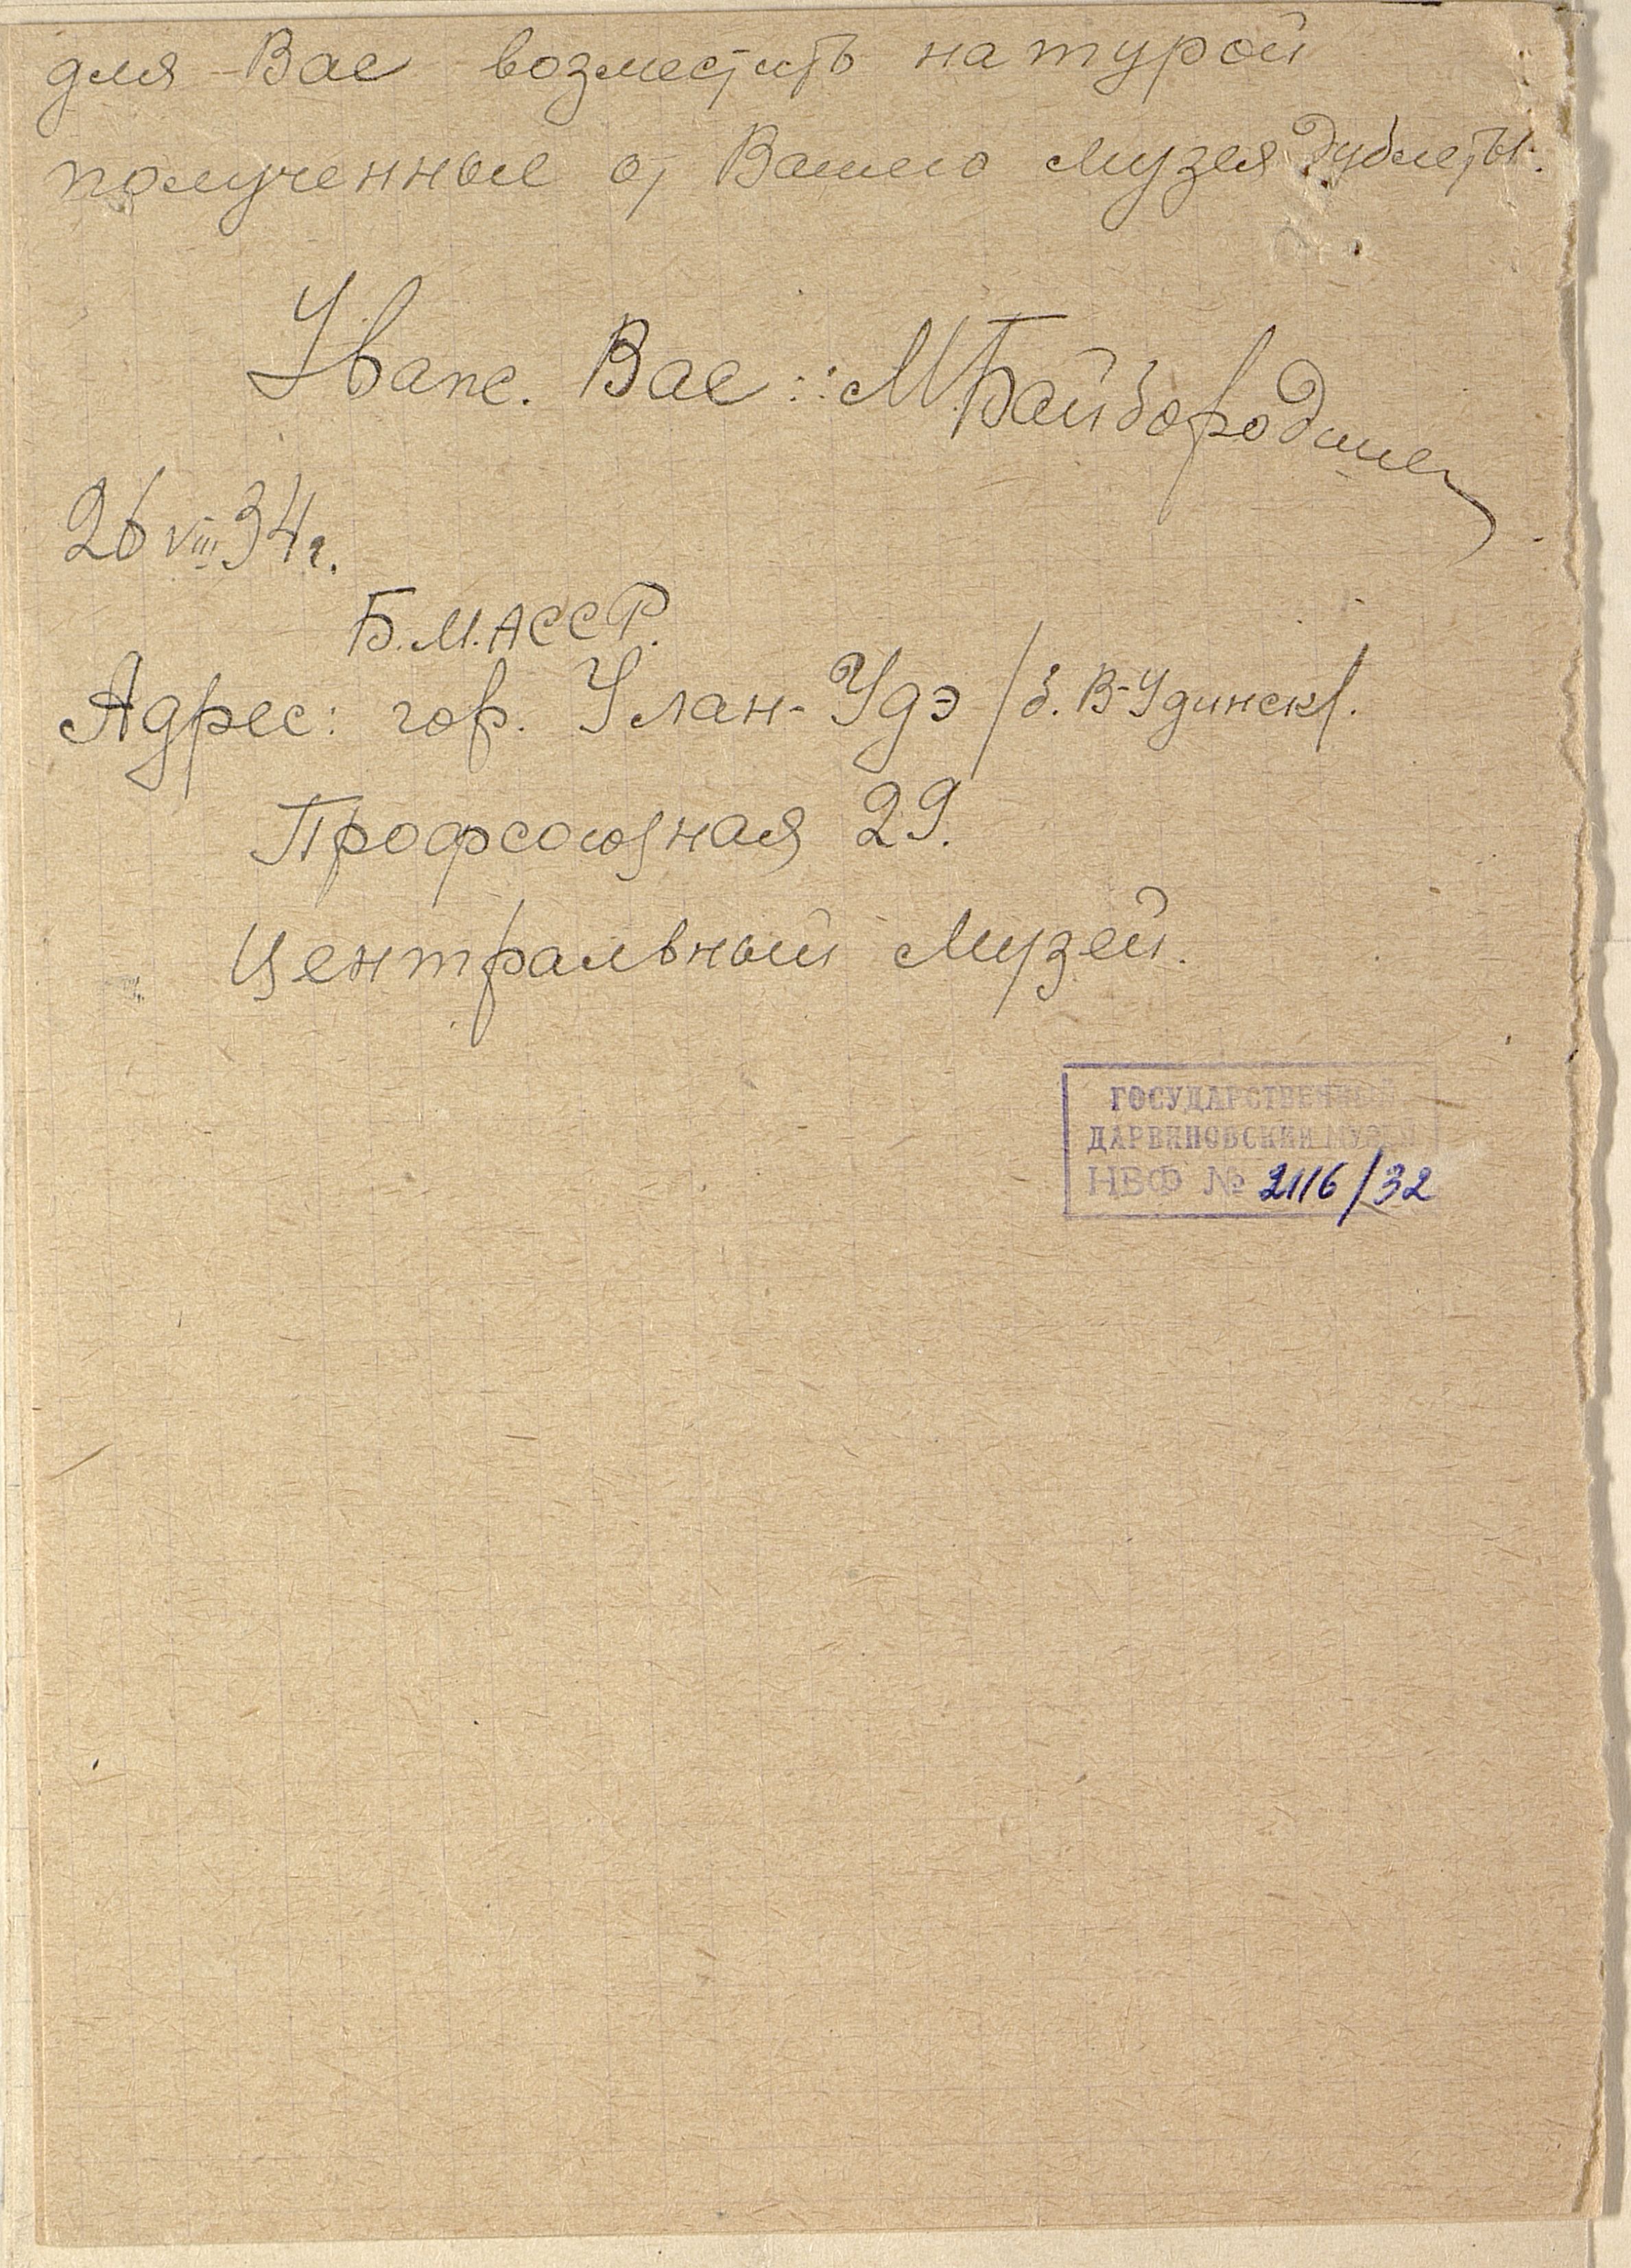 для Вас возместить натурой
полученные от Вашего музея дублеты.
Уваж. Вас: М. Байбородин
26 VIII 34 г.
Б.М.АССР.
Адрес: гор. Улан-Удэ /б. В-Удинск/.
Профсоюзная 29.
Центральный Музей.
ГОСУДАРСТВЕННЫЙ
ДАРВИНОВСКИЙ МУЗЕЙ
НВФ № 2116/32